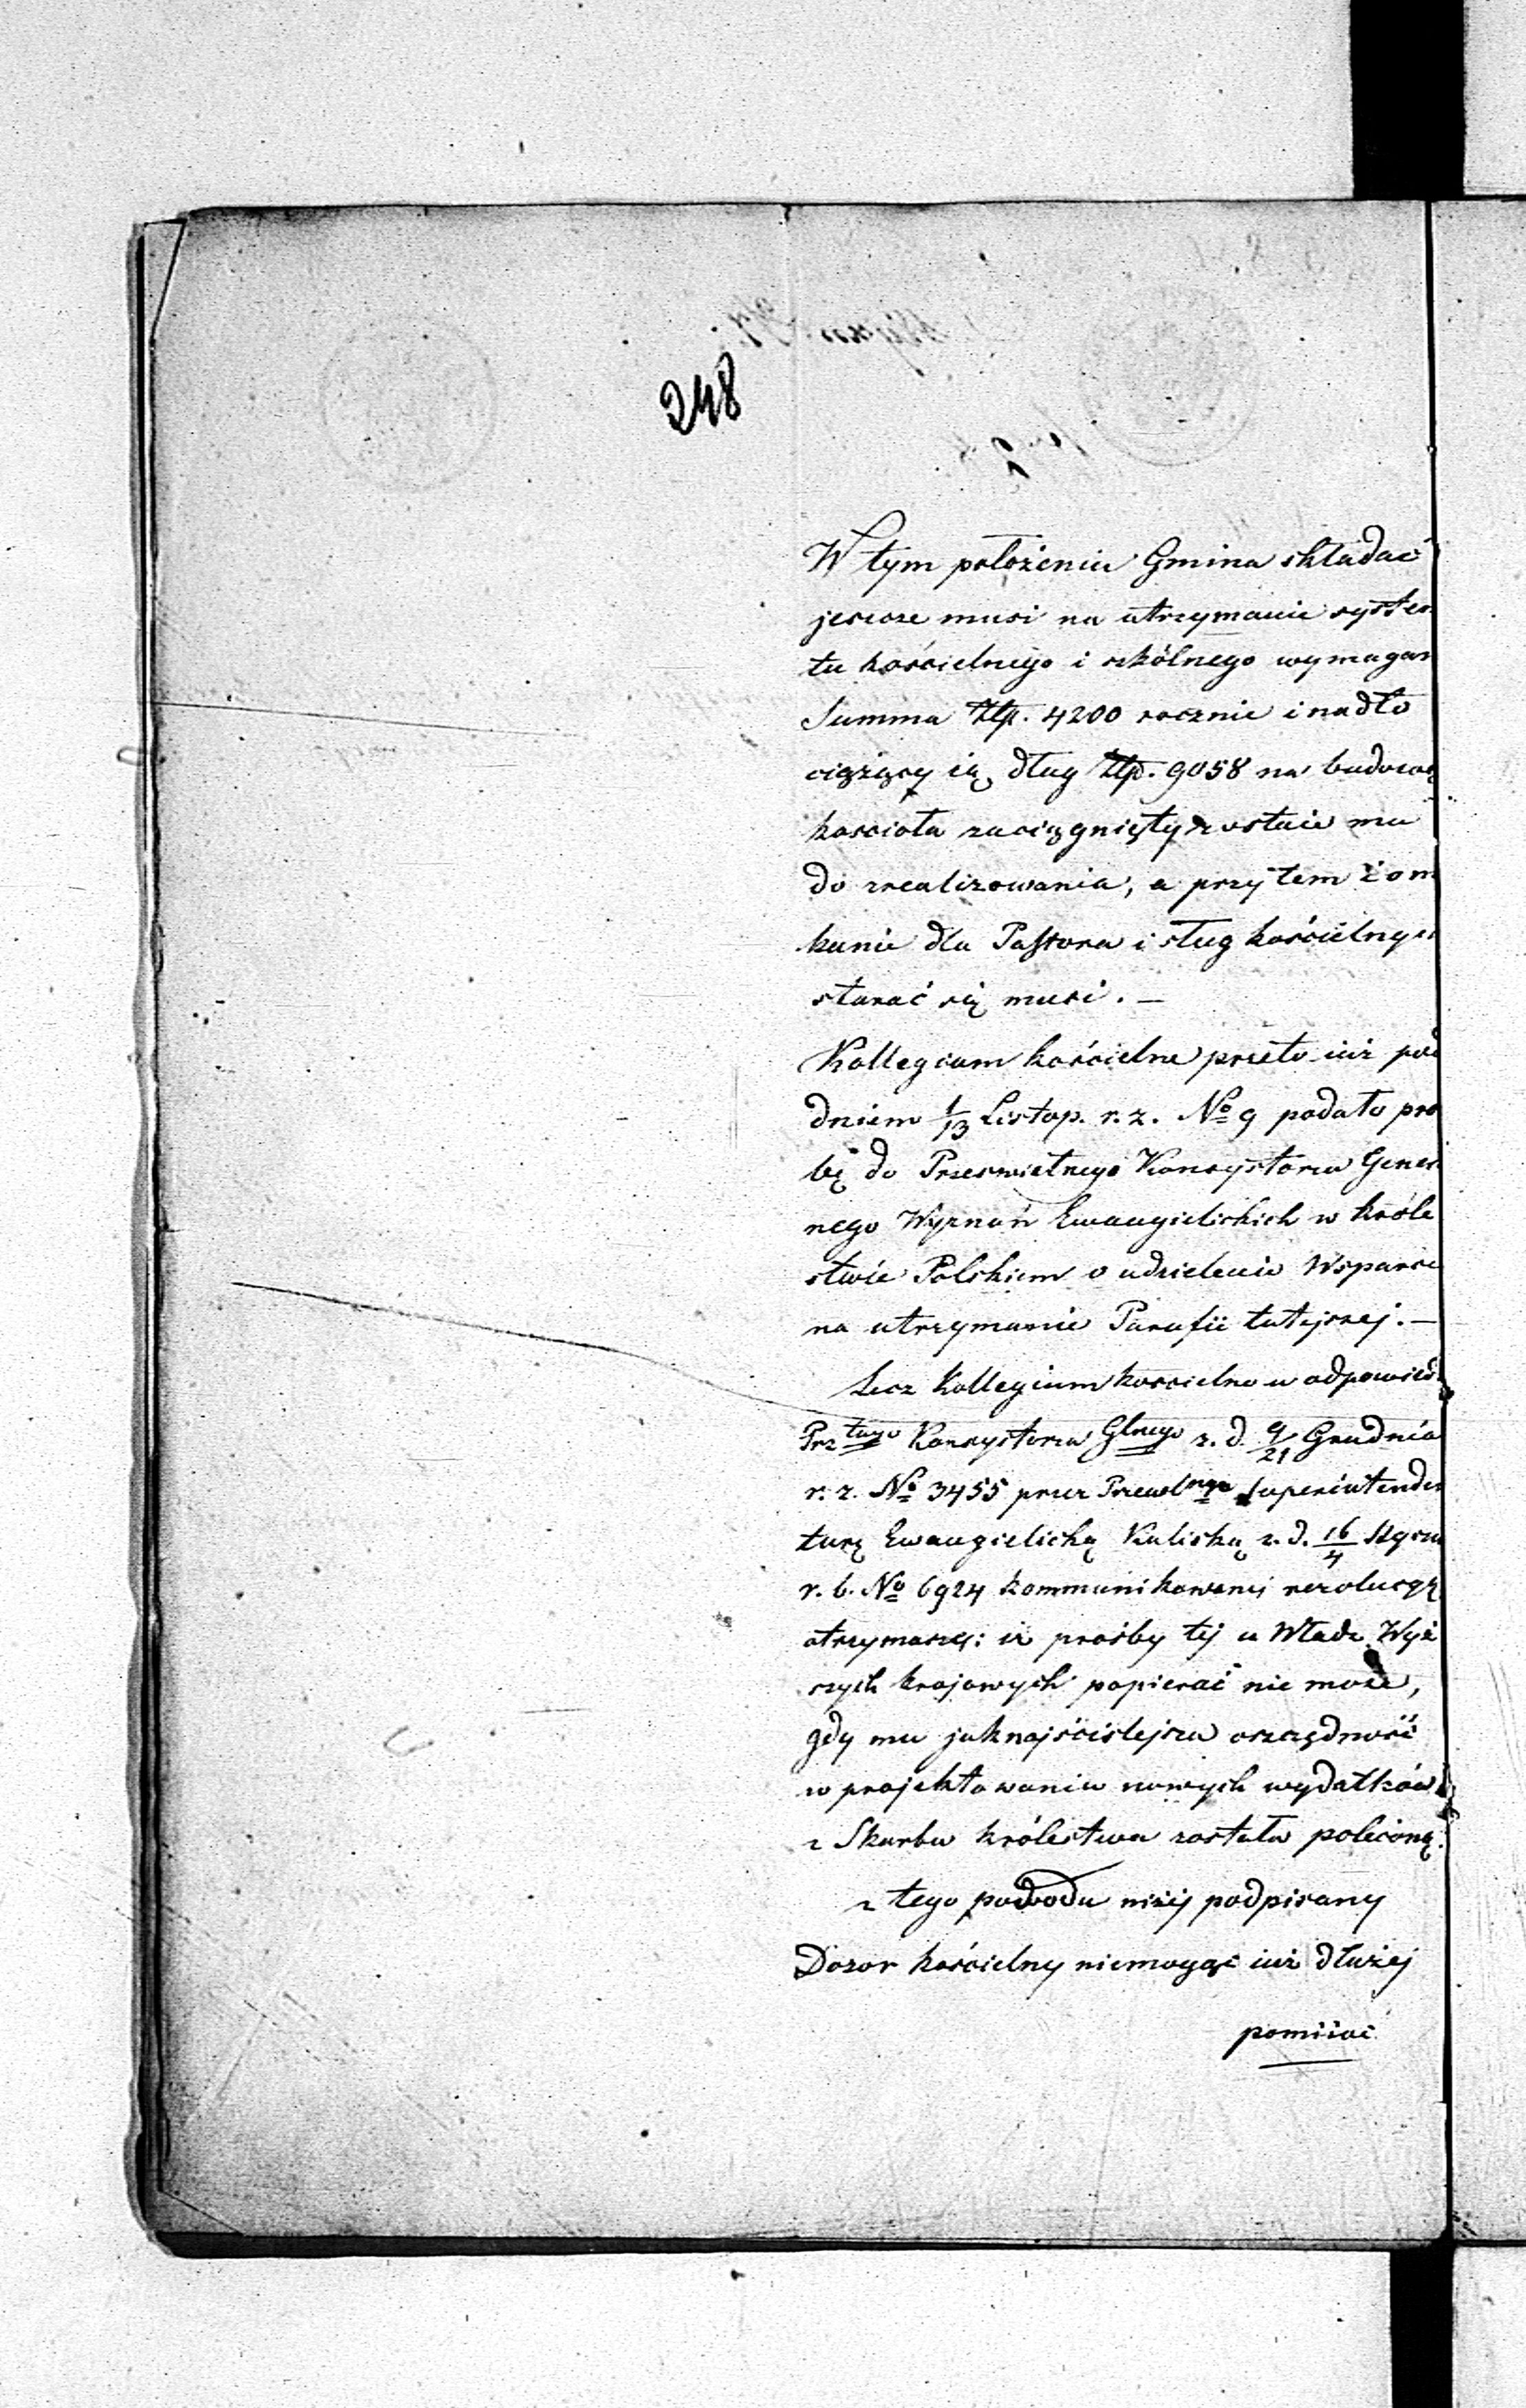 248
W tym położeniu Gmina składać
jescze musi na utrzymanie system
tu kościelnego i szkólnego wymagan
Summa Złp. 4200 rocznie i nadto
ciążący ią dług Złp. 9058 na budową
kościoła zaciągnięty zostaie mu
do zrealizowania, a przytem o om
kanie dla Pastora i sług kościelnych
starać się musi. —
Kollegium kościelne przeto iuż pod
dniem 1/13 Listop. r. z. No 9 podało proś
bę do Prześwietnego Konsystorza Gener
nego Wyznań Ewangielickich w Króle
stwie Polskiem o udzielenie Wsparcia
na utrzymanie Parafii tutejszej. —
Lecz Kollegium kościelne w odpowiedz
Prztego Konsystorza Glnego z. d. 9/21 Grudnia
r. z. No 3455 przez Przewlną Superintenden
turę Ewangielicką Kaliską z. d. 16/4 Stycz
r. b. No 6924 kommunikowanej rezolucyą
otrzymaszy: iż prośby tej u Władz Wyż
szych krajowych popierać nie może,
gdy mu jaknajściślejsza oszczędność
w projektowaniu nowych wydatków
z Skarbu królestwa została poleconą.
z tego powodu niżej podpisany
Dozor kościelny niemogąc iuż dłużej
pomiiać